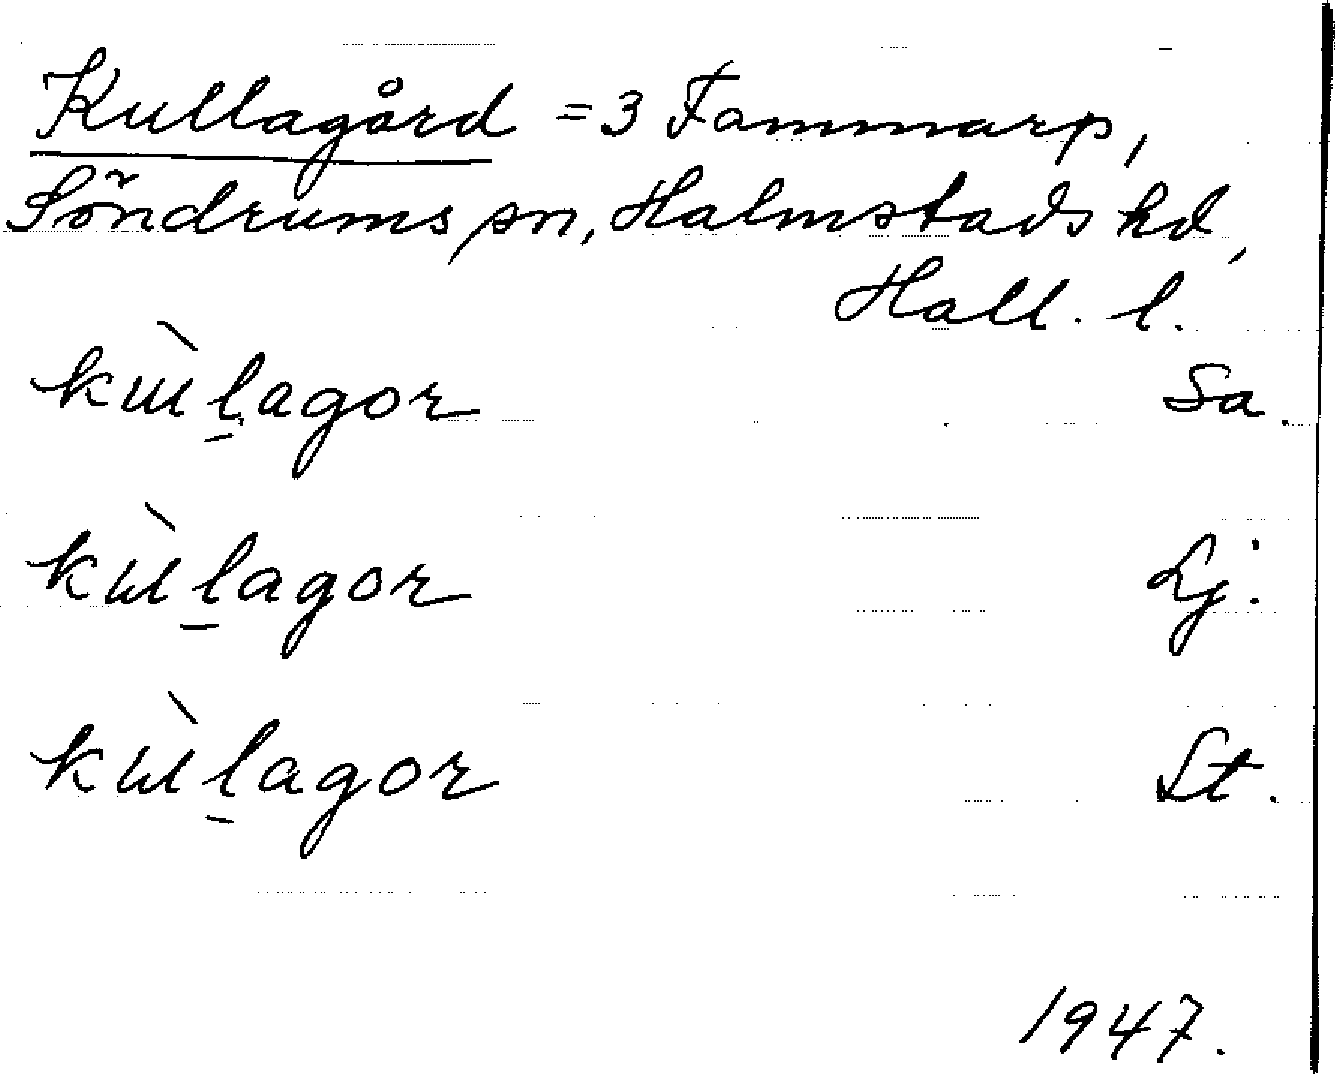 Kullagård = 3 Fammarp,
Söndrums sn, Halmstads hd,
Hall. l.
kɯ̀l̠agor Sa.
kɯ̀l̠agor Lj.
kɯ̀l̠agor St.
1947.